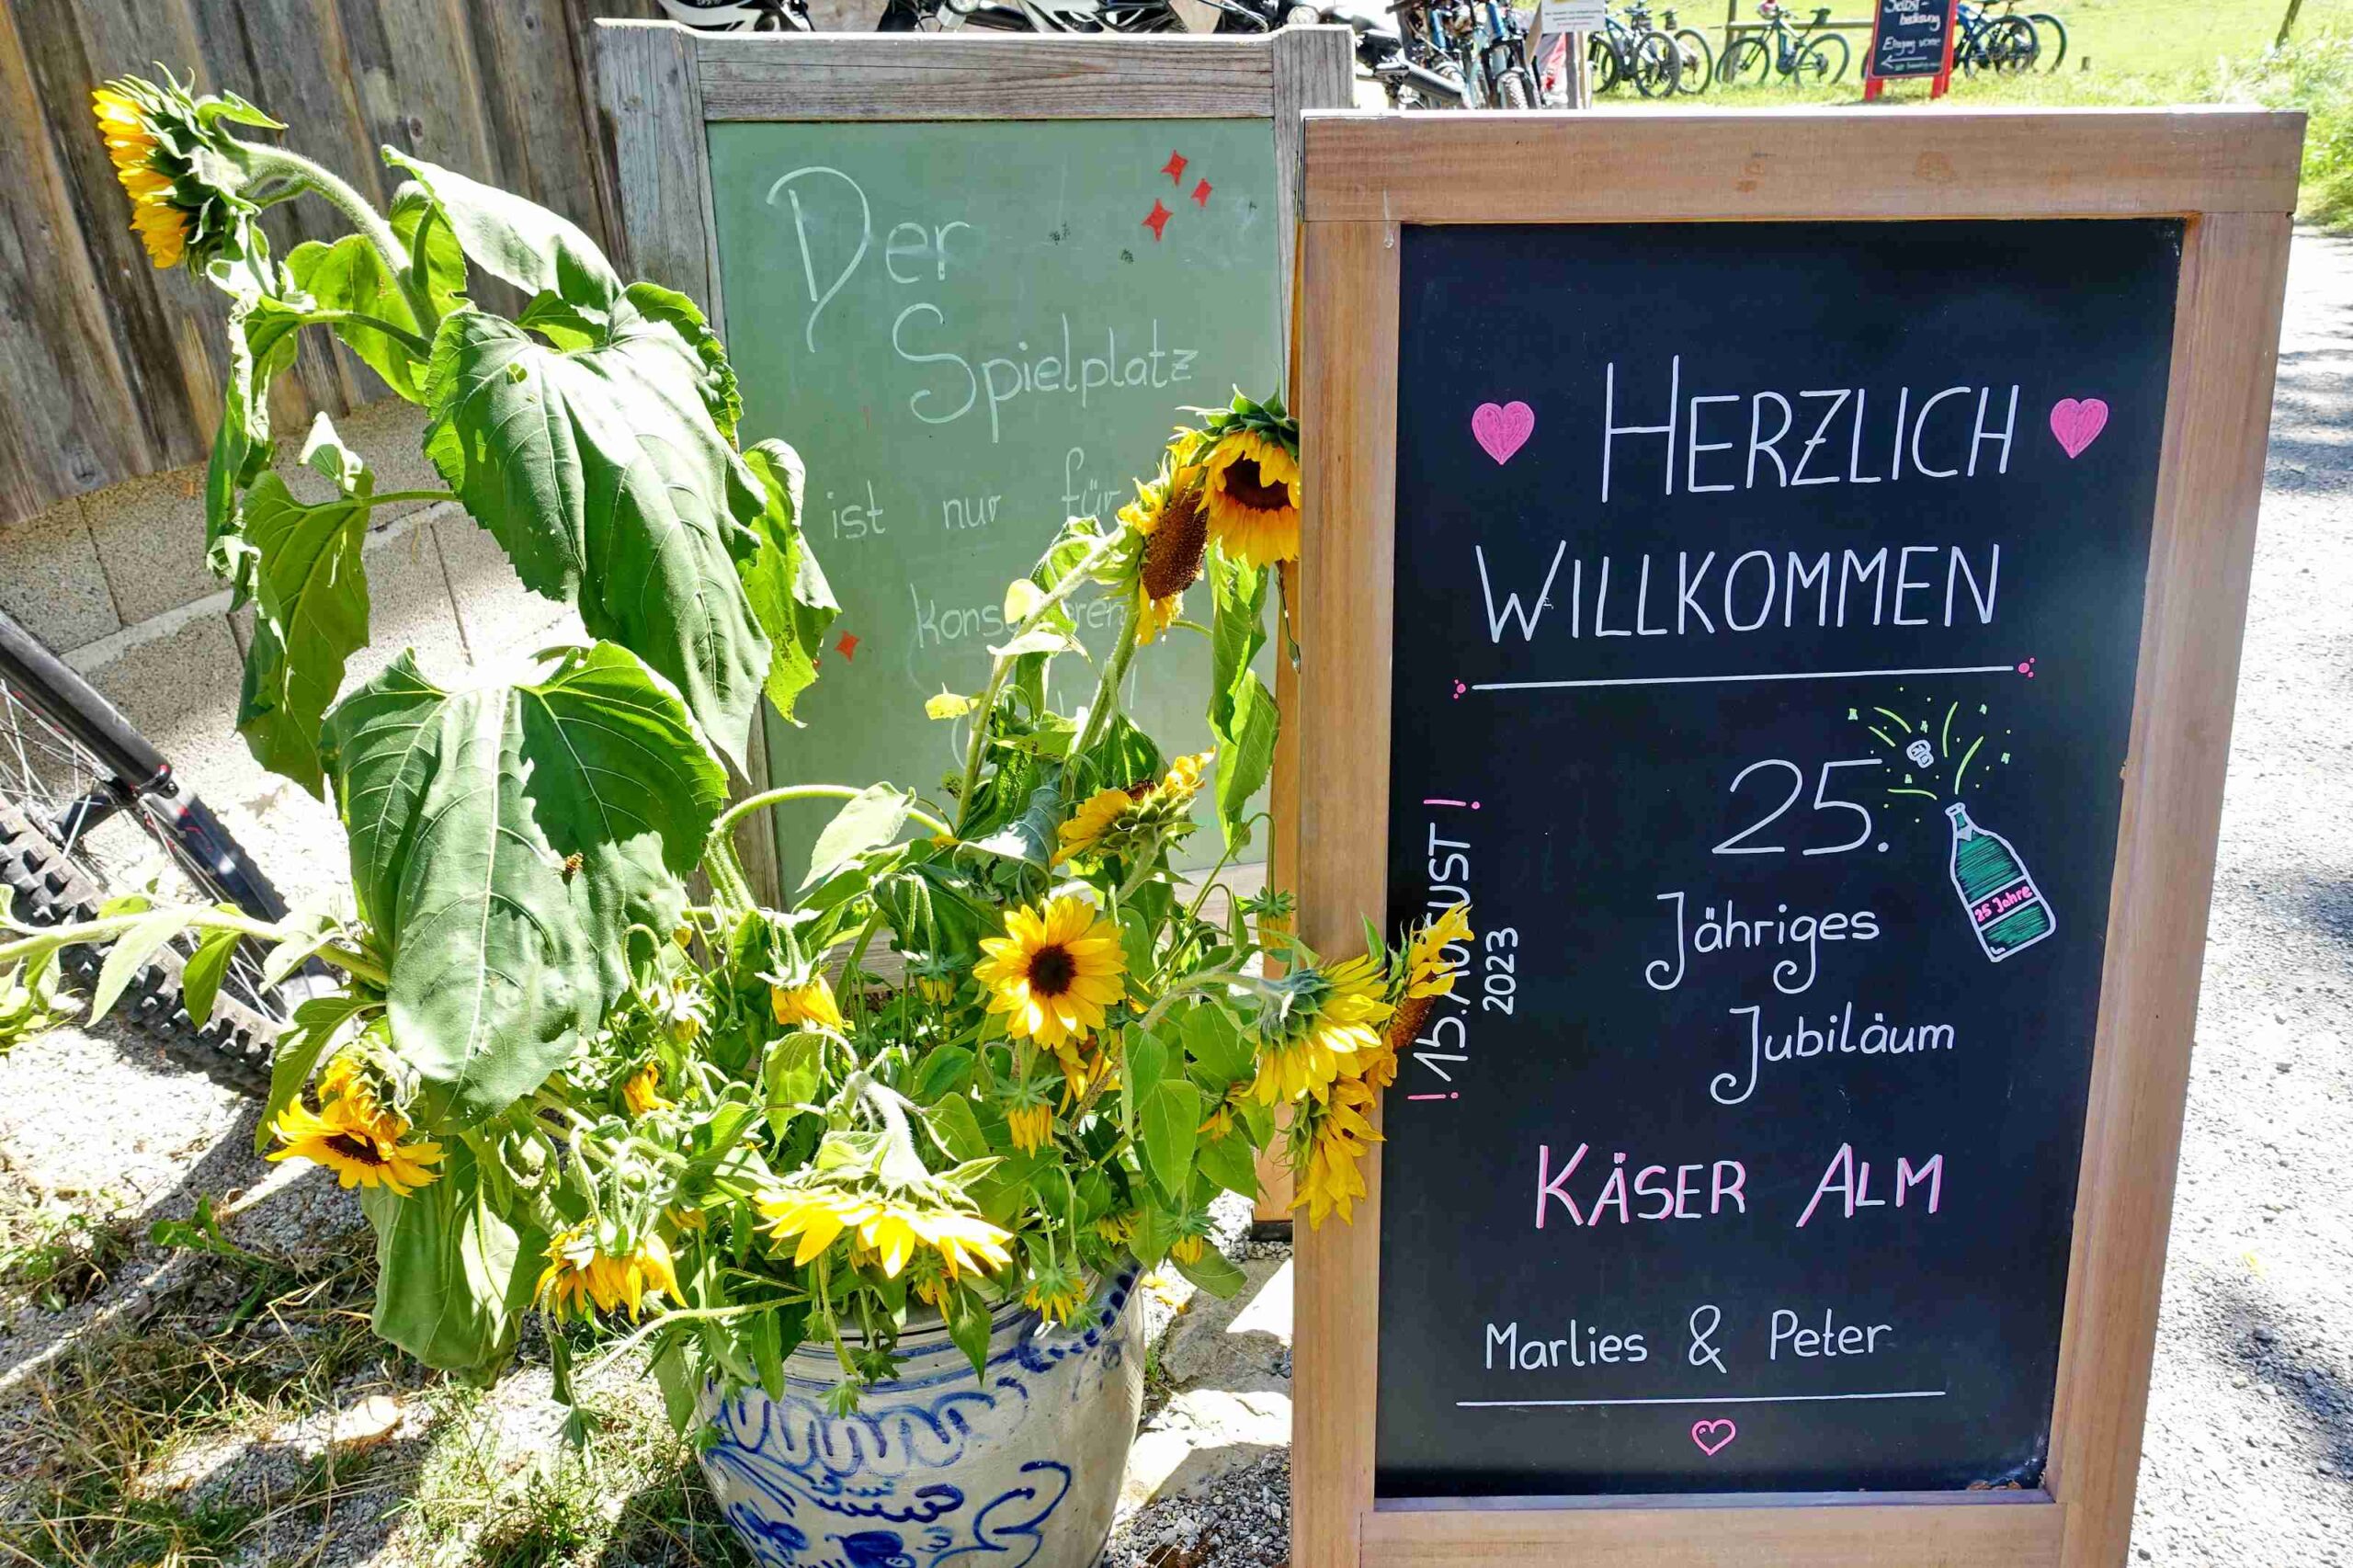 Der
Spielplatz
ist nur für
HERZLICH
WILLKOMMEN
25.
Jähriges
Jubiläum
25 Jahre
! 15. AUGUST !
2023
KÄSER ALM
Marlies & Peter
Selbst-
bedienung
Eingang vorne